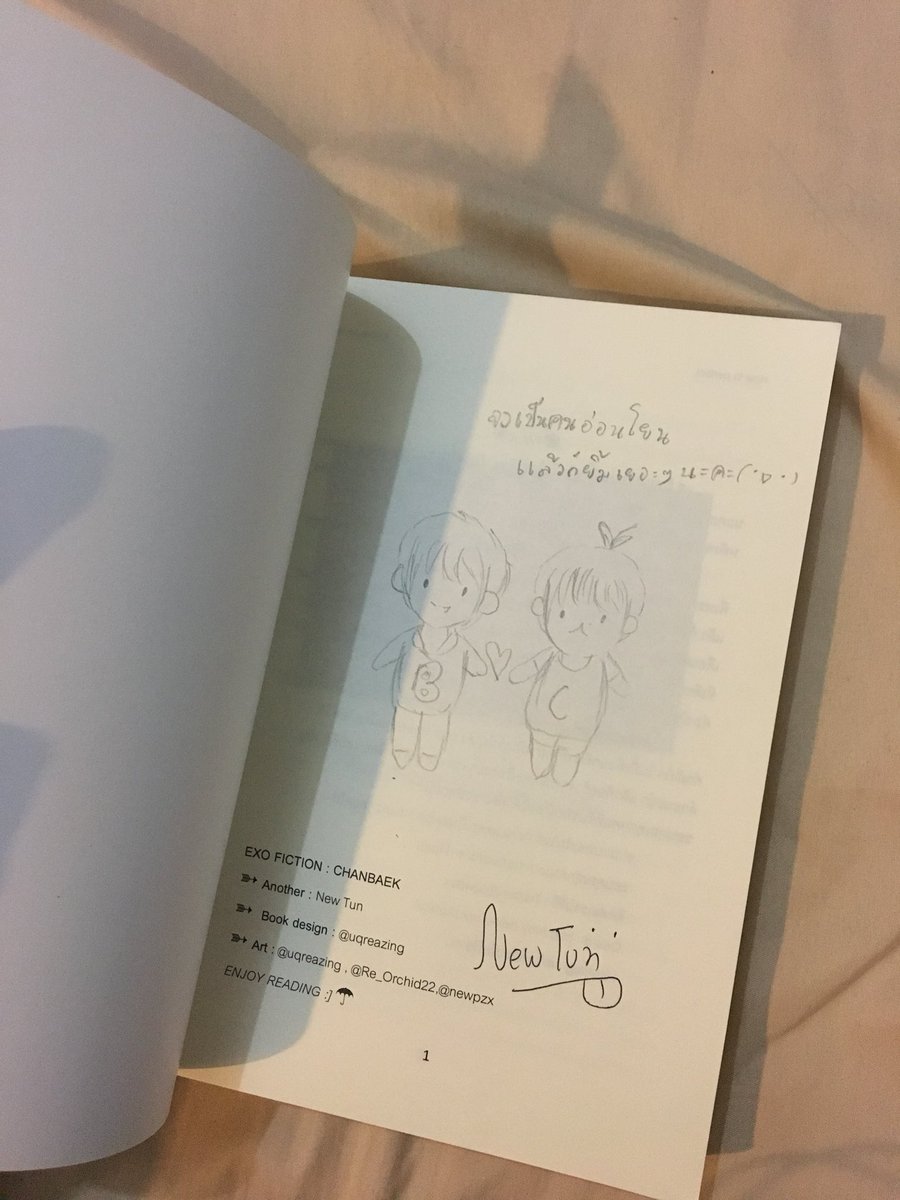 จงเป็นคนอ่อนโยน
แล้วก็ยิ้มเยอะๆ นะคะ(˙▽˙)
B
C
EXO FICTION : CHANBAEK
➳ Another : New Tun
➳ Book design : @uqreazing
➳ Art : @uqreazing , @Re_Orchid22,@newpzx
ENJOY READING :] ☂
New Tun
1